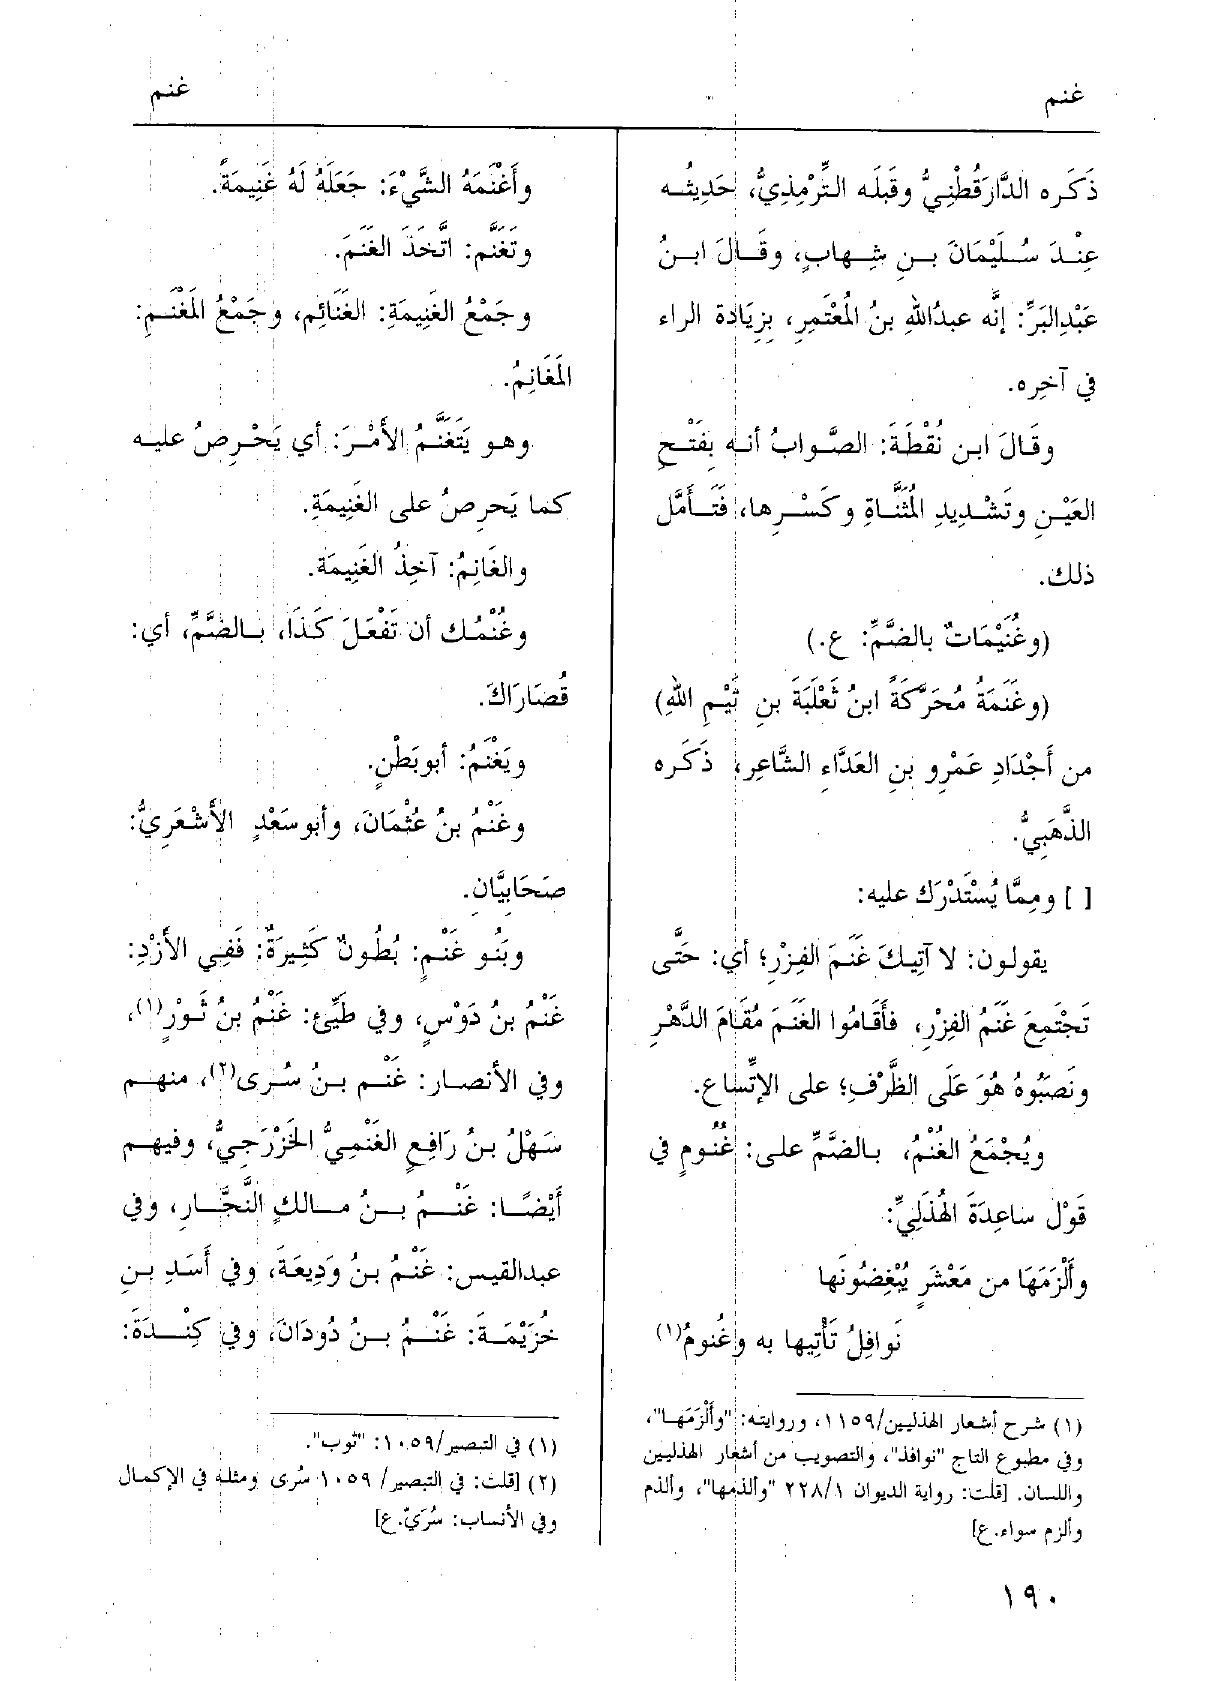 غنم
غنم
ذَكَره الدَّارَقُطْنِيُّ وقَبلَه التِّرْمِذِيُّ، حَدِيثُه
عِنْدَ سُلَيْمَانَ بنِ شِهابٍ، وقَالَ ابنُ
عَبْدِالبَرِّ: إنَّه عبدُاللهِ بنُ المُعْتَمِرِ، بِزِيَادة الراء
في آخِرِه.
وقَالَ ابن نُقْطَةَ: الصَّوابُ أنه بِفَتْحِ
العَيْنِ وتَشْدِيدِ المُثَنَّاةِ وكَسْرِها، فَتَأَمَّل
ذلك.
(وغُنَيْمَاتٌ بالضَّمِّ: ع.)
(وغَنَمَةُ مُحَرَّكَةً ابنُ ثَعْلَبَةَ بنِ تَيْمِ اللهِ)
من أَجْدَادِ عَمْرِو بنِ العَدَّاءِ الشَّاعِرِ، ذَكَره
الذَّهَبِيُّ.
[ ] ومِمَّا يُسْتَدْرَك عليه:
يقولون: لا آتِيكَ غَنَمَ الفِزْرِ؛ أي: حَتَّى
تَجْتَمِعَ غَنَمُ الفِزْرِ، فأَقَامُوا الغَنَمَ مُقَامَ الدَّهْرِ
ونَصَبُوهُ هُوَ عَلَى الظَّرْفِ؛ على الإتِّسَاع.
ويُجْمَعُ الغُنْمُ، بالضَّمِّ على: غُنُومٍ في
قَوْل ساعِدَةَ الهُذَلِيِّ:
وأَلْزَمَهَا من مَعْشَرٍ يُبْغِضُونَها
نَوافِلُ تَأْتِيها به وغُنومُ(١)
(١) شرح أشعار الهذليين/١١٥٩، وروايته: "وأَلْزَمَها"،
وفي مطبوع التاج "نوافذ"، والتصويب من أشعار الهذليين
واللسان. [قلت: رواية الديوان ٢٢٨/١ "وألذمها"، وألذم
وألزم سواء.ع]
وأَغْنَمَهُ الشَّيْءَ: جَعَلَهُ لَهُ غَنِيمَةً.
وتَغَنَّم: اتَّخَذَ الغَنَمَ.
وجَمْعُ الغَنِيمَةِ: الغَنَائِم، وجَمْعُ المَغْنَمِ:
المَغَانِمُ.
وهو يَتَغَنَّمُ الأَمْرَ: أي يَحْرِصُ عليه
كما يَحرِصُ على الغَنِيمَةِ.
والغَانِمُ: آخِذُ الغَنِيمَة.
وغُنْمُك أن تَفْعَلَ كَذَا، بالضَّمِّ، أي:
قُصَارَاكَ.
ويَغْنَمُ: أبوبَطْنٍ.
وغَنْمُ بنُ عُثْمَانَ، وأبوسَعْدٍ الأَشْعَرِيُّ:
صَحَابِيَّانِ.
وبَنُو غَنْمٍ: بُطُونٌ كَثِيرَةٌ: فَفِي الأَزْدِ:
غَنْمُ بنُ دَوْسٍ، وفي طَيِّئ: غَنْمُ بنُ ثَوْرٍ(١)،
وفي الأنصار: غَنْم بنُ سُرى(٢)، منهم
سَهْلُ بنُ رَافِعٍ الغَنْمِيُّ الخَزْرَجِيُّ، وفيهم
أَيْضًا: غَنْمُ بنُ مالكٍ النَّجَّار، وفي
عبدالقيس: غَنْمُ بنُ وَدِيعَةَ، وفي أَسَدِ بنِ
خُزَيْمَةَ: غَنْمُ بنُ دُودَانَ، وفي كِنْدَةَ:
(١) في التبصير/١٠٥٩: "ثوب".
(٢) [قلت: في التبصير/ ١٠٥٩ سُرى ومثله في الإكمال
وفي الأنساب: سُرَيّ.ع]
١٩٠